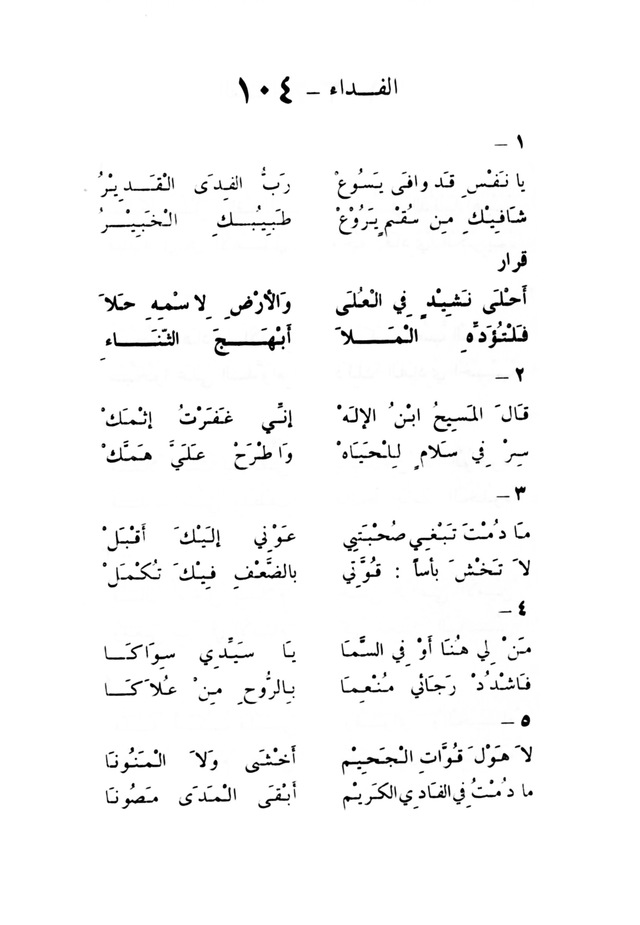 الفـــداء – ١٠٤
١ –
يا نَفْسِ قَد وافى يَسُوعْ رَبُّ الفِدَى الْقَـــدِيْرُ
شَافِيْكِ مِن سُقْمٍ يَرُوْعْ طَبِيْبُـــكِ الْخَبِيْـــرُ
قرار
أَحْلَى نَشِيْدٍ فِي الْعُلَى وَالْأَرْضِ لِاسْمِهِ حَلاَ
فَلْتُؤَدِّهِ الْمَـــلاَ أَبْهَـــجَ الثَّنَـــاءِ
٢ –
قَالَ الْمَسِيحُ ابْنُ الإِلهْ إِنِّي غَفَرْتُ إِثْمَكْ
سِرْ فِي سَلَامٍ لِلْحَيَاهْ وَاطْرَحْ عَلَيَّ هَمَّكْ
٣ –
مَا دُمْتَ تَبْغِي صُحْبَتِي عَوْنِي إِلَيْكَ أَقْبَلْ
لاَ تَخْشَ بَأساً : قُوَّتِي بالضَّعْفِ فِيْكَ تُكْمَلْ
٤ –
مَنْ لِي هُنَا أَوْ فِي السَّمَا يَا سَيِّدِي سِوَاكَـــا
فَاشْدُدْ رَجَائي مُنْعِمَا بِالرُّوحِ مِنْ عُلاَكَـــا
٥ –
لاَ هَوْلَ قُوَّاتِ الْجَحِيْمْ أَخْشَى وَلاَ الْمَنُونَا
ما دُمْتُ فِي الفَادِي الكَرِيْمْ أَبْقَى الْمَدَى مَصُونَا